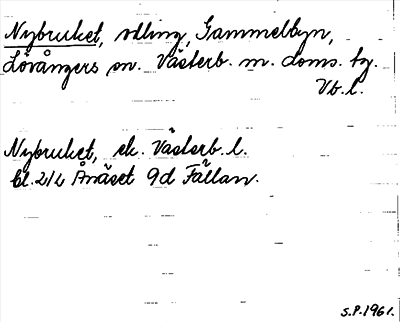 Nybruket, odling, Gammelbyn,
Lövångers sn. Västerb. m. doms. tg.
Vb.l.
Nybruket, ek. Västerb. l.
bl. 21L Ånäset 9d Fällan.
S.P. 1961.